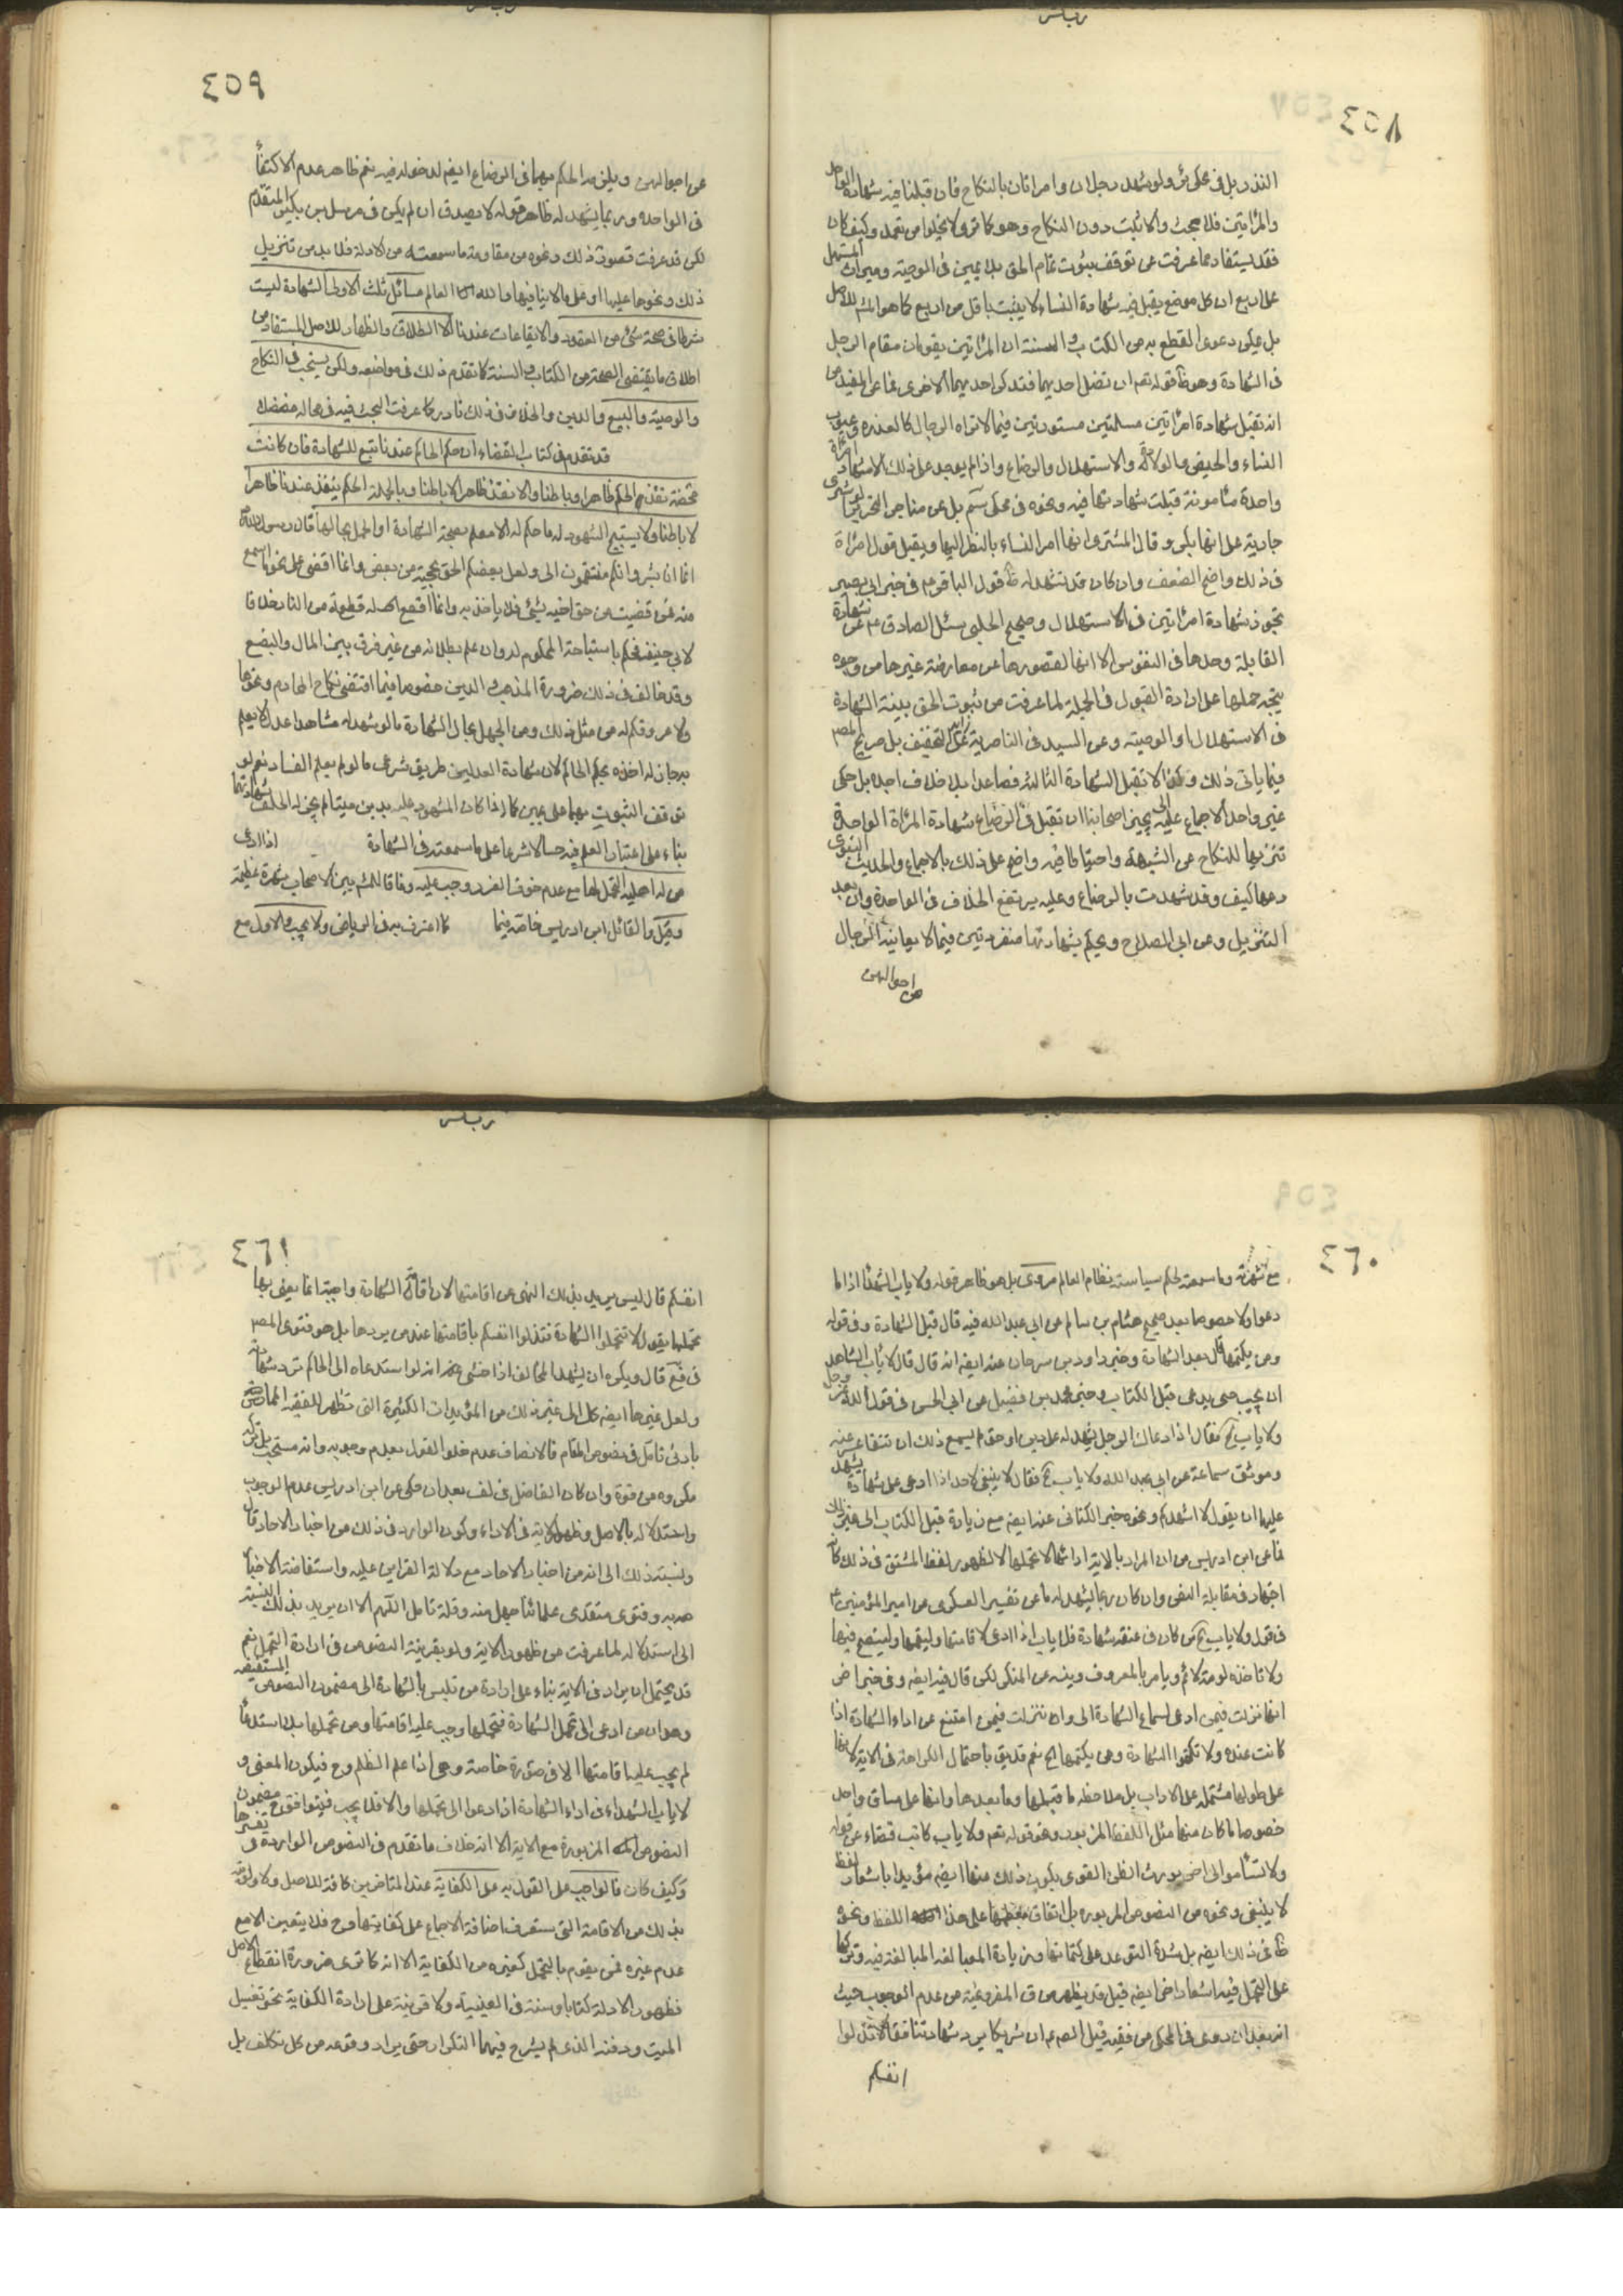 ٤٥٨
النذر بل في محكى ئر ولو شهد رجلان وامراتان بالنكاح فان قبلنا فيه شهادة الواحد
والمراتين فلا بحث والا ثبت دون النكاح وهو كما ترى ولا يخلوا من تعمد وكيف كان
فقد يستفاد مما عرفت عن توقف ثبوت تمام الحق بلا يمين في الوصية وميراث المستهل
على اربع ان كل موضع يقبل فيه شهادة النساء لا يثبت باقل من اربع كما هو المش للاصل
بل يمكن دعوى القطع به من الكتاب والسنة ان المراتين يقومان مقام الرجل
في الشهادة وهو ظ قوله تعم ان تضل احديهما فتذكر احديهما الاخرى فما عن المفيد من
انه تقبل شهادة امراتين مسلمتين مستورتين فيما لا تراه الرجال كالعذرة وعيوب
النساء والحيض والولادة والاستهلال والرضاع واذا لم يوجد على ذلك الا شهادة امراة
واحدة مأمونة قبلت شهادتها فيه ونحوه في محكى سم بل عن مناجى التحرير لو اشترى
جارية على انها بكر وقال المشترى انها امر النساء بالنظر اليها ويقبل قول امراة
في ذلك واضح الضعف وان كان قد تشهد له ظ قول الباقر ع في خبر ابي بصير
تجوز شهادة امراتين في الاستهلال وصحيح الحلبي سئل الصادق ع عن شهادة
القابلة وحدها في النفوس الا انها لقصورها عن معارضة غيرها من وجوه
يتجه حملها على ارادة القبول في الجملة لما عرفت من ثبوت الحق بنسبة الشهادة
في الاستهلال او الوصية وعن السيد في الناصرية بل صريح المص
فيما ياتي ذلك وكذا لا تقبل الشهادة الثالثة فصاعدا بلا خلاف اجده بل حكى
غير واحد الاجماع عليه يجيز اصحابنا ان تقبل في الرضاع شهادة المراة الواحدة
تنزيها للنكاح عن الشبهة واحتياطا فيه واضح على ذلك بالاجماع والحديث النبوي
دعها كيف وقد شهدت بالرضاع وعليه يرتفع الخلاف في الواحدة وان بعد
التنزيل وعن ابي الصلاح ويحكم بشهادتها منفردتين فيما لا يعاينه الرجال
من احوالهن
٤٥٩
من احوالهن ويلزمه الحكم بهما في الرضاع ايضم لدخوله فيه نعم ظاهره عدم الاكتفاء
في الواحدة وربما يشهد له ظاهر قوله لا يصدق ان لم يكن في مرسل بن بكير المتقدم
لكن قد عرفت قصور ذلك ونحوه من مقاومة ما سمعته من الادلة فلا بد من تنزيل
ذلك ونحوها عليها او على ما لا ينافيها والله العالم مسائل ثلث الاولى الشهادة ليست
شرطا في صحة شئ من العقود والايقاعات عندنا الا الطلاق والظهار للاصل المستفاد من
اطلاق ما يقتضى الصحة من الكتاب والسنة كما تقدم ذلك في مواضعه ولكن يستحب في النكاح
والوصية والبيع والدين والخلاف في ذلك نادر كما عرفت البحث فيه في محاله مفصلا
قد تقدم في كتاب القضاء ان حكم الحاكم عندنا تبع للشهادة فان كانت
محققة نفذ الحكم ظاهرا وباطنا والا نفذ ظاهرا لا باطنا وبالجملة الحكم ينفذ عندنا ظاهرا
لا باطنا ولا يستبيح المشهود له ما حكم له الا مع العلم بصحة الشهادة او الجهل بحالها قال رسول الله
انما انا بشر وانكم مختصمون الى ولعل بعضكم الحن بحجته من بعض وانما اقضى على نحو ما اسمع
منه فمن قضيت من حق اخيه بشئ فلا ياخذ به وانما اقطع له قطعة من النار خلافا
لابي حنيفة فحكم باستباحة المحكوم له وان علم بطلانه من غير فرق بين المال والبضع
وقد خالف في ذلك ضرورة المذهب والدين خصوصا فيما اقتضى نكاح المحارم ونحوها
ولا مروقكم له من مثل ذلك ومن الجهل بحال الشهادة ما لو شهد له شاهدا عدل لا يعلم
به جاز له اخذه بحكم الحاكم لان شهادة العدلين طريق شرعي ما لم يعلم الفساد نعم لو
توقف الثبوت بهما على يمين كما اذا كان المشهود عليه بدين ميتا لم يجز له الحلف بشهادتهما
بناء على اعتبار العلم فيه حسا لا شرعا على ما سمعته في الشهادة اذا دعى
من له اهلية التحمل لها مع عدم خوف الضرر وجب عليه وفاقا للمش بين الاصحاب شهرة عظيمة
وقيل والقائل ابن ادريس خاصة فيما كما اعترف به في الرياض ولا يجب والاول مع
٤٦٠
مع شهرته وما سمعته لحكم سياسة نظام العالم مروى بل هو ظاهر قوله ولا ياب الشهداء اذا ما
دعوا ولا خصوصا بعد صحيح هشام بن سالم عن ابي عبد الله فيه قال قبل الشهادة وفي قوله
ومن يكتمها قال بعد الشهادة وخبر داود بن سرحان عنه ايضم انه قال قال لا ياب الشاهد
ان يجيب حين يدعى قبل الكتاب وخبر محمد بن فضيل عن ابي الحسن في قول الله عز وجل
ولا ياب الخ فقال اذا دعاك الرجل لتشهد له على دين او حق لم يسع ذلك ان تتقاعس عنه
وموثق سماعة عن ابي عبد الله ولا ياب الخ فقال لا ينبغي لاحد اذا دعى على شهادة يشهد
عليها ان يقول لا اشهد لكم ونحوه خبر الكناني عنه ايضم مع زيادة قبل الكتاب الى غير ذلك
فما عن ابن ادريس من ان المراد بالاية ادائها لا تحملها لا لظهور لفظ المشتق في ذلك كانه
اجتهاد في مقابلة النص وان كان ربما يشهد له ما عن تفسير العسكري عن امير المؤمنين ع
في قول ولا ياب الخ من كان في عنقه شهادة فلا ياب اذا ادعى لاقامتها وليقمها ولينصح فيها
ولا تاخذه لومة لائم ويامر بالمعروف وينه عن المنكر لكن قال فيه ايضم وفي خبر اخر
انها نزلت فيمن ادعى لسماع الشهادة الى وان نزلت فيمن امتنع عن اداء الشهادة اذا
كانت عنده ولا تكتموا الشهادة ومن يكتمها الخ نعم قد يق باحتمال الكراهة في الاية لانها
على طولها مشتملة على الاداب بل ملاحظة ما قبلها وما بعدها وانها على مساق واحد
خصوصا ما كان منها مثل اللفظ المزبور وهو قوله تعم ولا ياب كاتب فضلا عن قوله
ولا تسأموا الى اخره يورث الظن القوى بكون ذلك منها ايضم مؤيدا باشعار لفظ
لا ينبغي ونحوه من النصوص المزبورة بل اتفاق معظمها على هذا اللفظ ونحوه
ظ في ذلك ايضم بل شدة التوعد على كتمانها وزيادة المبالغة فيه وتركها
على التحمل فيه اشعار اخر ايضم قبل قد يظهر من ق المفروغية من عدم الوجوب حيث
انه بعد ان روى في المحكى من فقيه قيل للص ع ان شريكا يرد شهادتنا فقال لا تذلوا
انفسكم
٤٦١
انفسكم قال ليس يريد بذلك النهى عن اقامتها لان اقامة الشهادة واجبة انما يعنى بها
تحملها يقول لا تتحملوا الشهادة فتذلوا انفسكم باقامتها عند من يردها بل هو فتوى المص
في فع قال ويكره ان يشهد لمخالف اذا خشى انه لو استدعاه الى الحاكم ترد شهادته
ولعل غيرها ايضم كك الى غير ذلك من المؤيدات الكثيرة التى تظهر للفقيه الماهر
بادنى تامل في نصوص المقام فالانصاف عدم خلو القول بعدم وجوبه وانه مستحب بل تركه
مكروه من قوة وان كان الفاضل في لف بعد ان حكى عن ابن ادريس عدم الوجوب
واستدلاله بالاصل وظهور الاية في الاداء وكون الوارد في ذلك من اخبار الاحاد قال
ونسبته ذلك الى انه من اخبار الاحاد مع دلالة القرائن عليه واستفاضة الاخبار
به وفتوى متقدمى علمائنا جهل منه وقلة تامل اللهم الا ان يريد بذلك النسبة
الى استدلاله لما عرفت من ظهور الاية ولو بقرينة النصوص في ارادة التحمل نعم
قد يحتمل ان يراد في الاية بناء على ارادة من تلبس بالشهادة الى مضمون النصوص المستفيضة
وهو ان من ادعى الى تحمل الشهادة فتحملها وجب عليه اقامتها ومن تحملها بلا استدعاء
لم يجب عليه اقامتها الا في صورة خاصة وهي اذا علم الظلم وح فيكون المعنى و
لا ياب الشهداء في اداء الشهادة اذا دعوا الى تحملها والا فلا يجب فيتوافق ح مضمون
النصوص المزبورة مع الاية الا انه خلاف ما تقدم في النصوص الواردة في تفسيرها
وكيف كان فالواجب على القول به على الكفاية عند المتاخرين كافة للاصل ولاولوية
بذلك من الاقامة التى ستعرف اضافة الاجماع على كفايتها وح فلا يتعين الا مع
عدم غيره ممن يقوم بالتحمل كغيره من الكفاية الا انه كما ترى ضرورة انقطاع الاصل
بظهور الادلة كتابا وسنة في العينية ولا قرينة على ارادة الكفاية نحو تغسيل
الميت ودفنه الذى لم يشرع فيهما التكرار حتى يراد وقوعه من كل مكلف بل